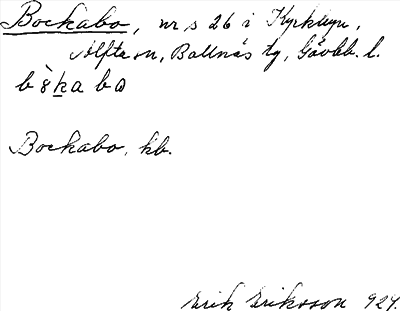 Bockabo, nr s 26 i Kyrkbyn,
Alfta sn, Bollnäs tg, Gävleb. l.
Bockabo, kb.
Erik Eriksson 924.